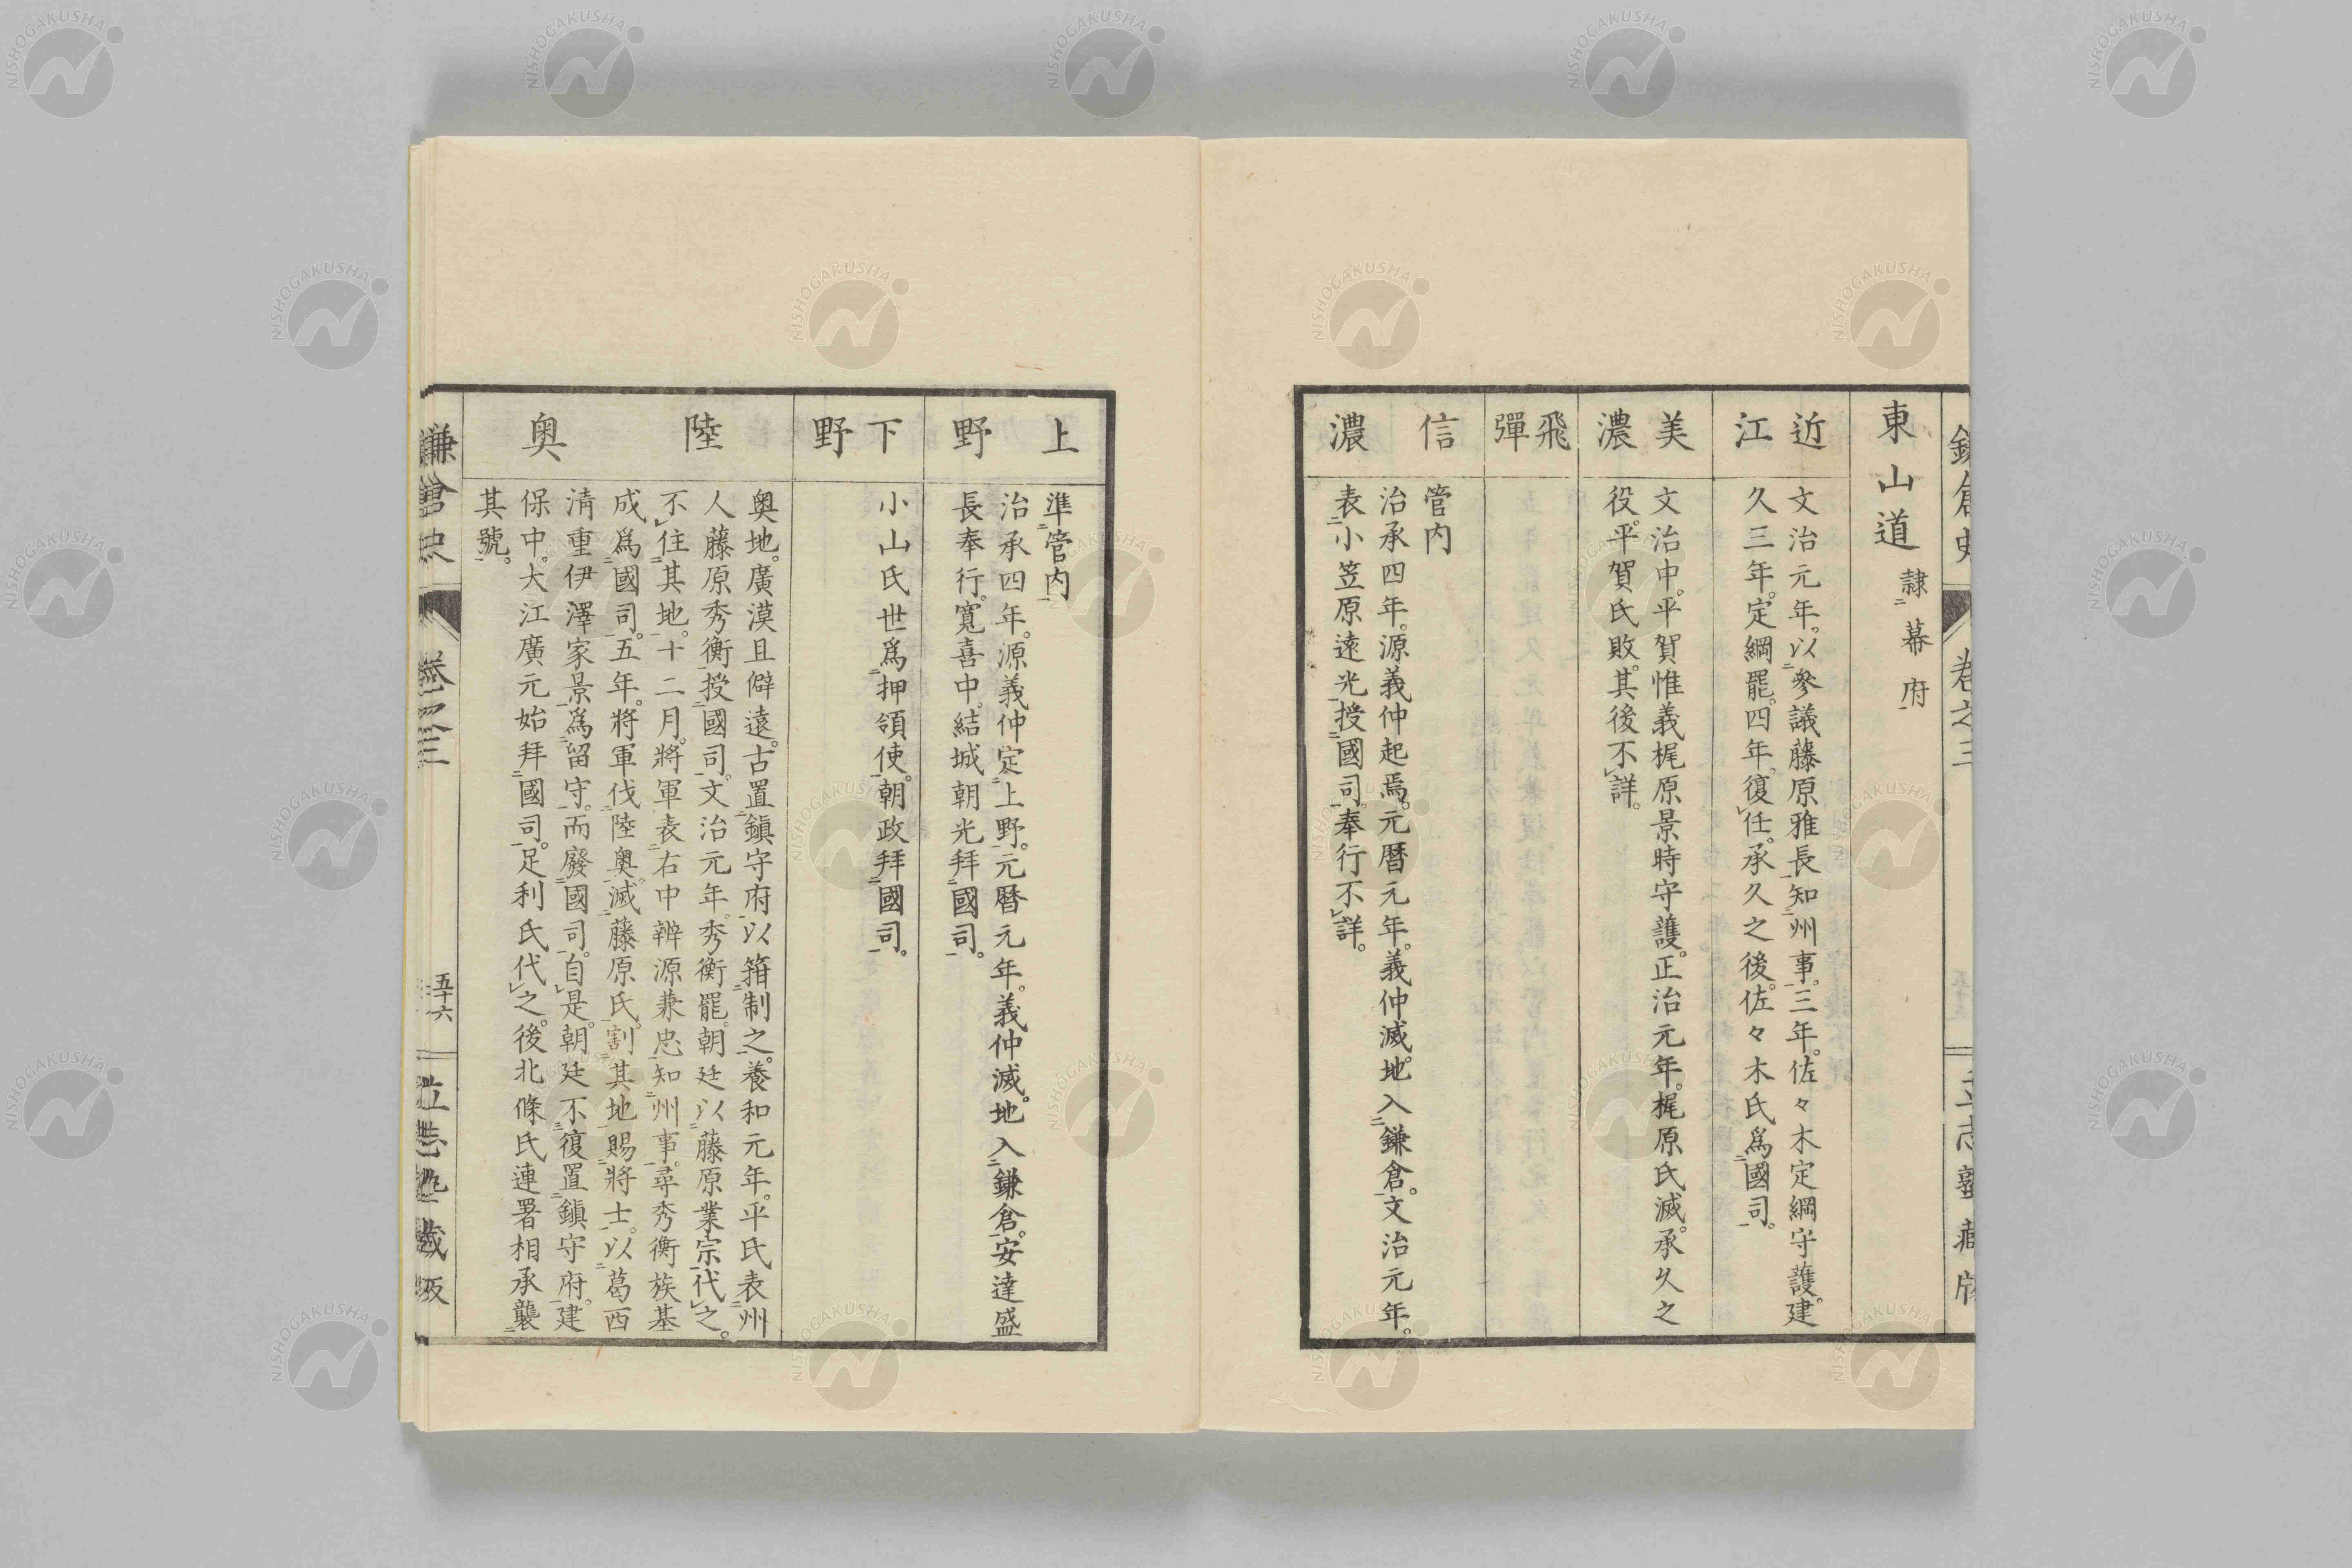 鎌倉史 卷之三 立志塾藏版
東山道 隷幕府
近江
文治元年。以參議藤原雅長知州事。三年。佐々木定綱守護。建
久三年。定綱罷。四年。復任。承久之後。佐々木氏爲國司。
美濃
文治中。平賀惟義梶原景時守護。正治元年。梶原氏滅。承久之
役。平賀氏敗。其後不詳。
飛彈
信濃
管内
治承四年。源義仲起焉。元曆元年。義仲滅。地入鎌倉。文治元年。
表小笠原遠光授國司。奉行不詳。
上野
準管内
治承四年。源義仲定上野。元曆元年。義仲滅。地入鎌倉。安達盛
長奉行。寬喜中。結城朝光拜國司。
下野
小山氏世爲押領使。朝政拜國司。
陸奥
奥地。廣漠且僻遠。古置鎭守府。以箝制之。養和元年。平氏表州
人藤原秀衡授國司。文治元年。秀衡罷。朝廷以藤原業宗代之。
不住其地。十二月。將軍表右中辨源兼忠知州事。尋秀衡族基
成爲國司。五年。將軍伐陸奥。滅藤原氏。割其地賜將士。以葛西
清重伊澤家景爲留守。而廢國司。自是。朝廷不復置鎭守府。建
保中。大江廣元始拜國司。足利氏代之。後北條氏連署相承襲
其號。
鎌倉史 卷之三 五十六 立志塾藏版